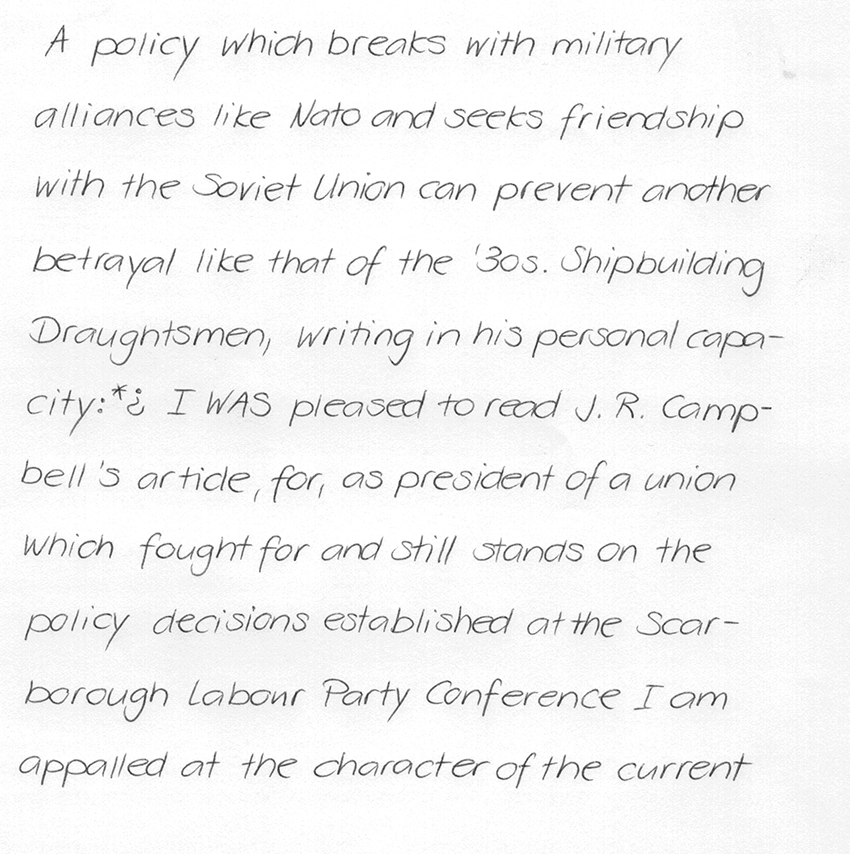 A policy which breaks with military
alliances like Nato and seeks friendship
with the Soviet Union can prevent another
betrayal like that of the '30s. Shipbuilding
Draughtsmen, writing in his personal capa-
city:*¿ I WAS pleased to read J. R. Camp-
bell's article, for, as president of a union
which fought for and still stands on the
policy decisions established at the Scar-
borough Labour Party Conference I am
appalled at the character of the current